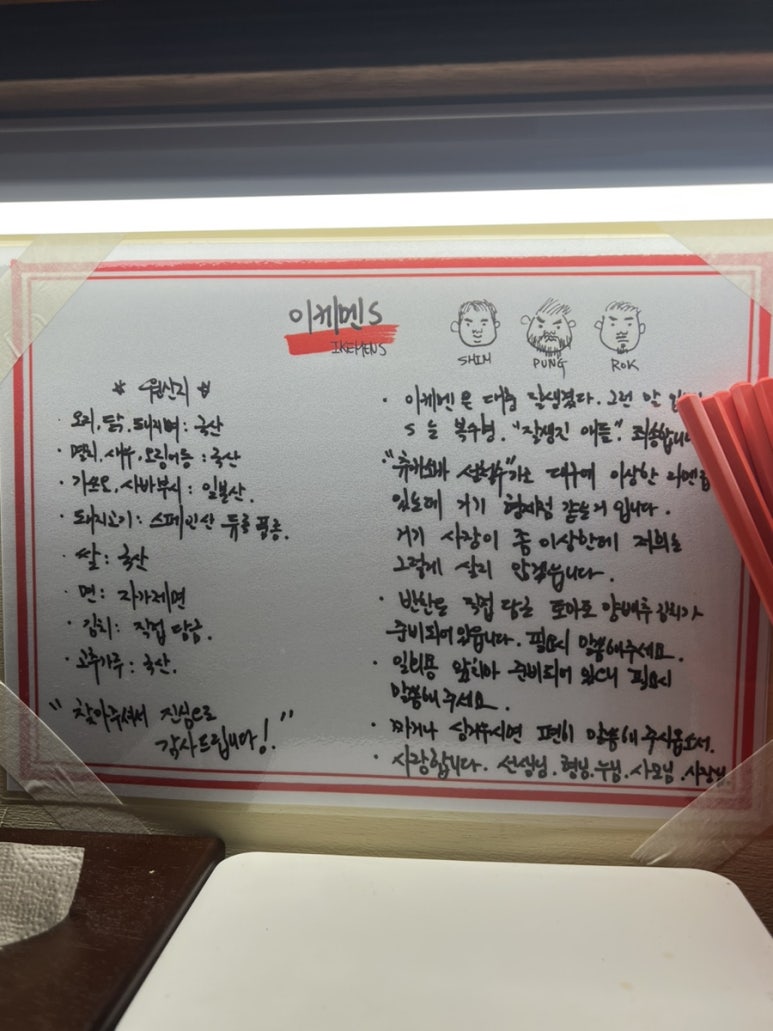 이케멘S
IKEMENS
SHIM
PUNG
ROK
* 원산지 *
· 오리, 닭, 돼지뼈 : 국산
· 멸치, 새우, 오징어등 : 국산
· 가쓰오, 사바부시 : 일본산.
· 돼지고기 : 스페인산 듀록 품종.
· 쌀 : 국산
· 면 : 자가제면
· 김치 : 직접 담금.
· 고추가루 : 국산.
"찾아주셔서 진심으로
감사드립니다!"
· 이케멘은 대충 잘생겼다. 그런 말
S 는 복수형. "잘생긴 애들". 죄송합니다
가 대구에 이상한 라멘
있는데 거기 형제점 같은거 입니다.
거기 사장이 좀 이상한데 저희는
그렇게 살지 않겠습니다.
· 반찬은 직접 담근 토마토 양배추 김치가
준비되어 있습니다. 필요시 말씀해주세요.
· 일회용 앞치마 준비되어 있으니 필요시
말씀해주세요.
· 짜거나 싱거우시면 편히 말씀해 주시옵소서.
· 사랑합니다. 선생님. 형님. 누님. 사모님. 사장님.